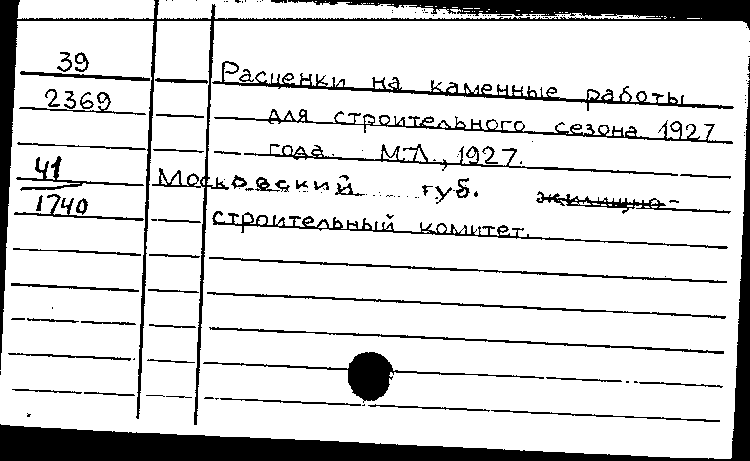 39
2369
41
1740
Расценки на каменные работы
для строительного сезона 1927
года. М.-Л., 1927.
Московский губ. жилищно-
строительный комитет.